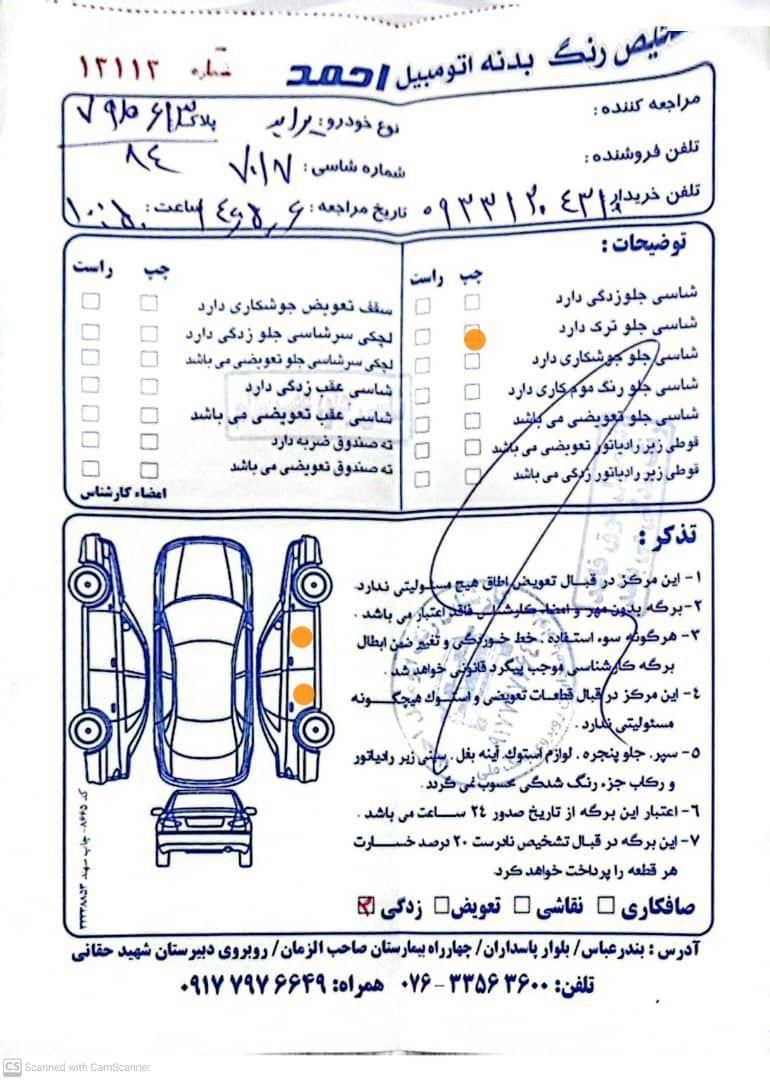 رنگ بدنه اتومبیل احمد
شماره ۱۲۱۱۲
مراجعه کننده :
تلفن فروشنده :
تلفن خریدار
نوع خودرو : پراید
پلاک
۸۴
شماره شاسی : ۷۰۱۷
تاریخ مراجعه :
ساعت :
توضیحات :
چپ راست
شاسی جلوزدگی دارد
شاسی جلو ترک دارد
شاسی جلو جوشکاری دارد
شاسی جلو رنگ موم کاری دارد
شاسی جلو تعویضی می باشد
قوطی زیر رادیاتور تعویضی می باشد
قوطی زیر رادیاتور زدگی می باشد
چپ راست
سقف تعویض جوشکاری دارد
لچکی سرشاسی جلو زدگی دارد
لچکی سرشاسی جلو تعویضی می باشد
شاسی عقب زدگی دارد
شاسی عقب تعویضی می باشد
ته صندوق ضربه دارد
ته صندوق تعویضی می باشد
امضاء کارشناس
تذکر :
۱- این مرکز در قبال تعویض اطاق هیچ مسئولیتی ندارد.
۲- برگه بدون مهر و امضاء کارشناسی فاقد اعتبار می باشد .
۳- هرگونه سوء استفاده . خط خوردگی و تغییر ضمن ابطال
برگه کارشناسی موجب پیگرد قانونی خواهد شد .
۴- این مرکز در قبال قطعات تعویضی و استوک هیچگونه
مسئولیتی ندارد .
۵- سپر. جلو پنجره . لوازم استوک آینه بغل . سینی زیر رادیاتور
و رکاب جزء رنگ شدگی محسوب نمی گردد .
۶- اعتبار این برگه از تاریخ صدور ۲۴ ساعت می باشد .
۷- این برگه در قبال تشخیص نادرست ۲۰ درصد خسارت
هر قطعه را پرداخت خواهد کرد.
صافکاری نقاشی تعویض زدگی
آدرس : بندرعباس/ بلوار پاسداران/ چهارراه بیمارستان صاحب الزمان/ روبروی دبیرستان شهید حقانی
تلفن: ۳۶۰۰ ۳۳۵۶ - ۰۷۶ همراه: ۶۶۴۹ ۷۹۷ ۰۹۱۷
CS Scanned with CamScanner